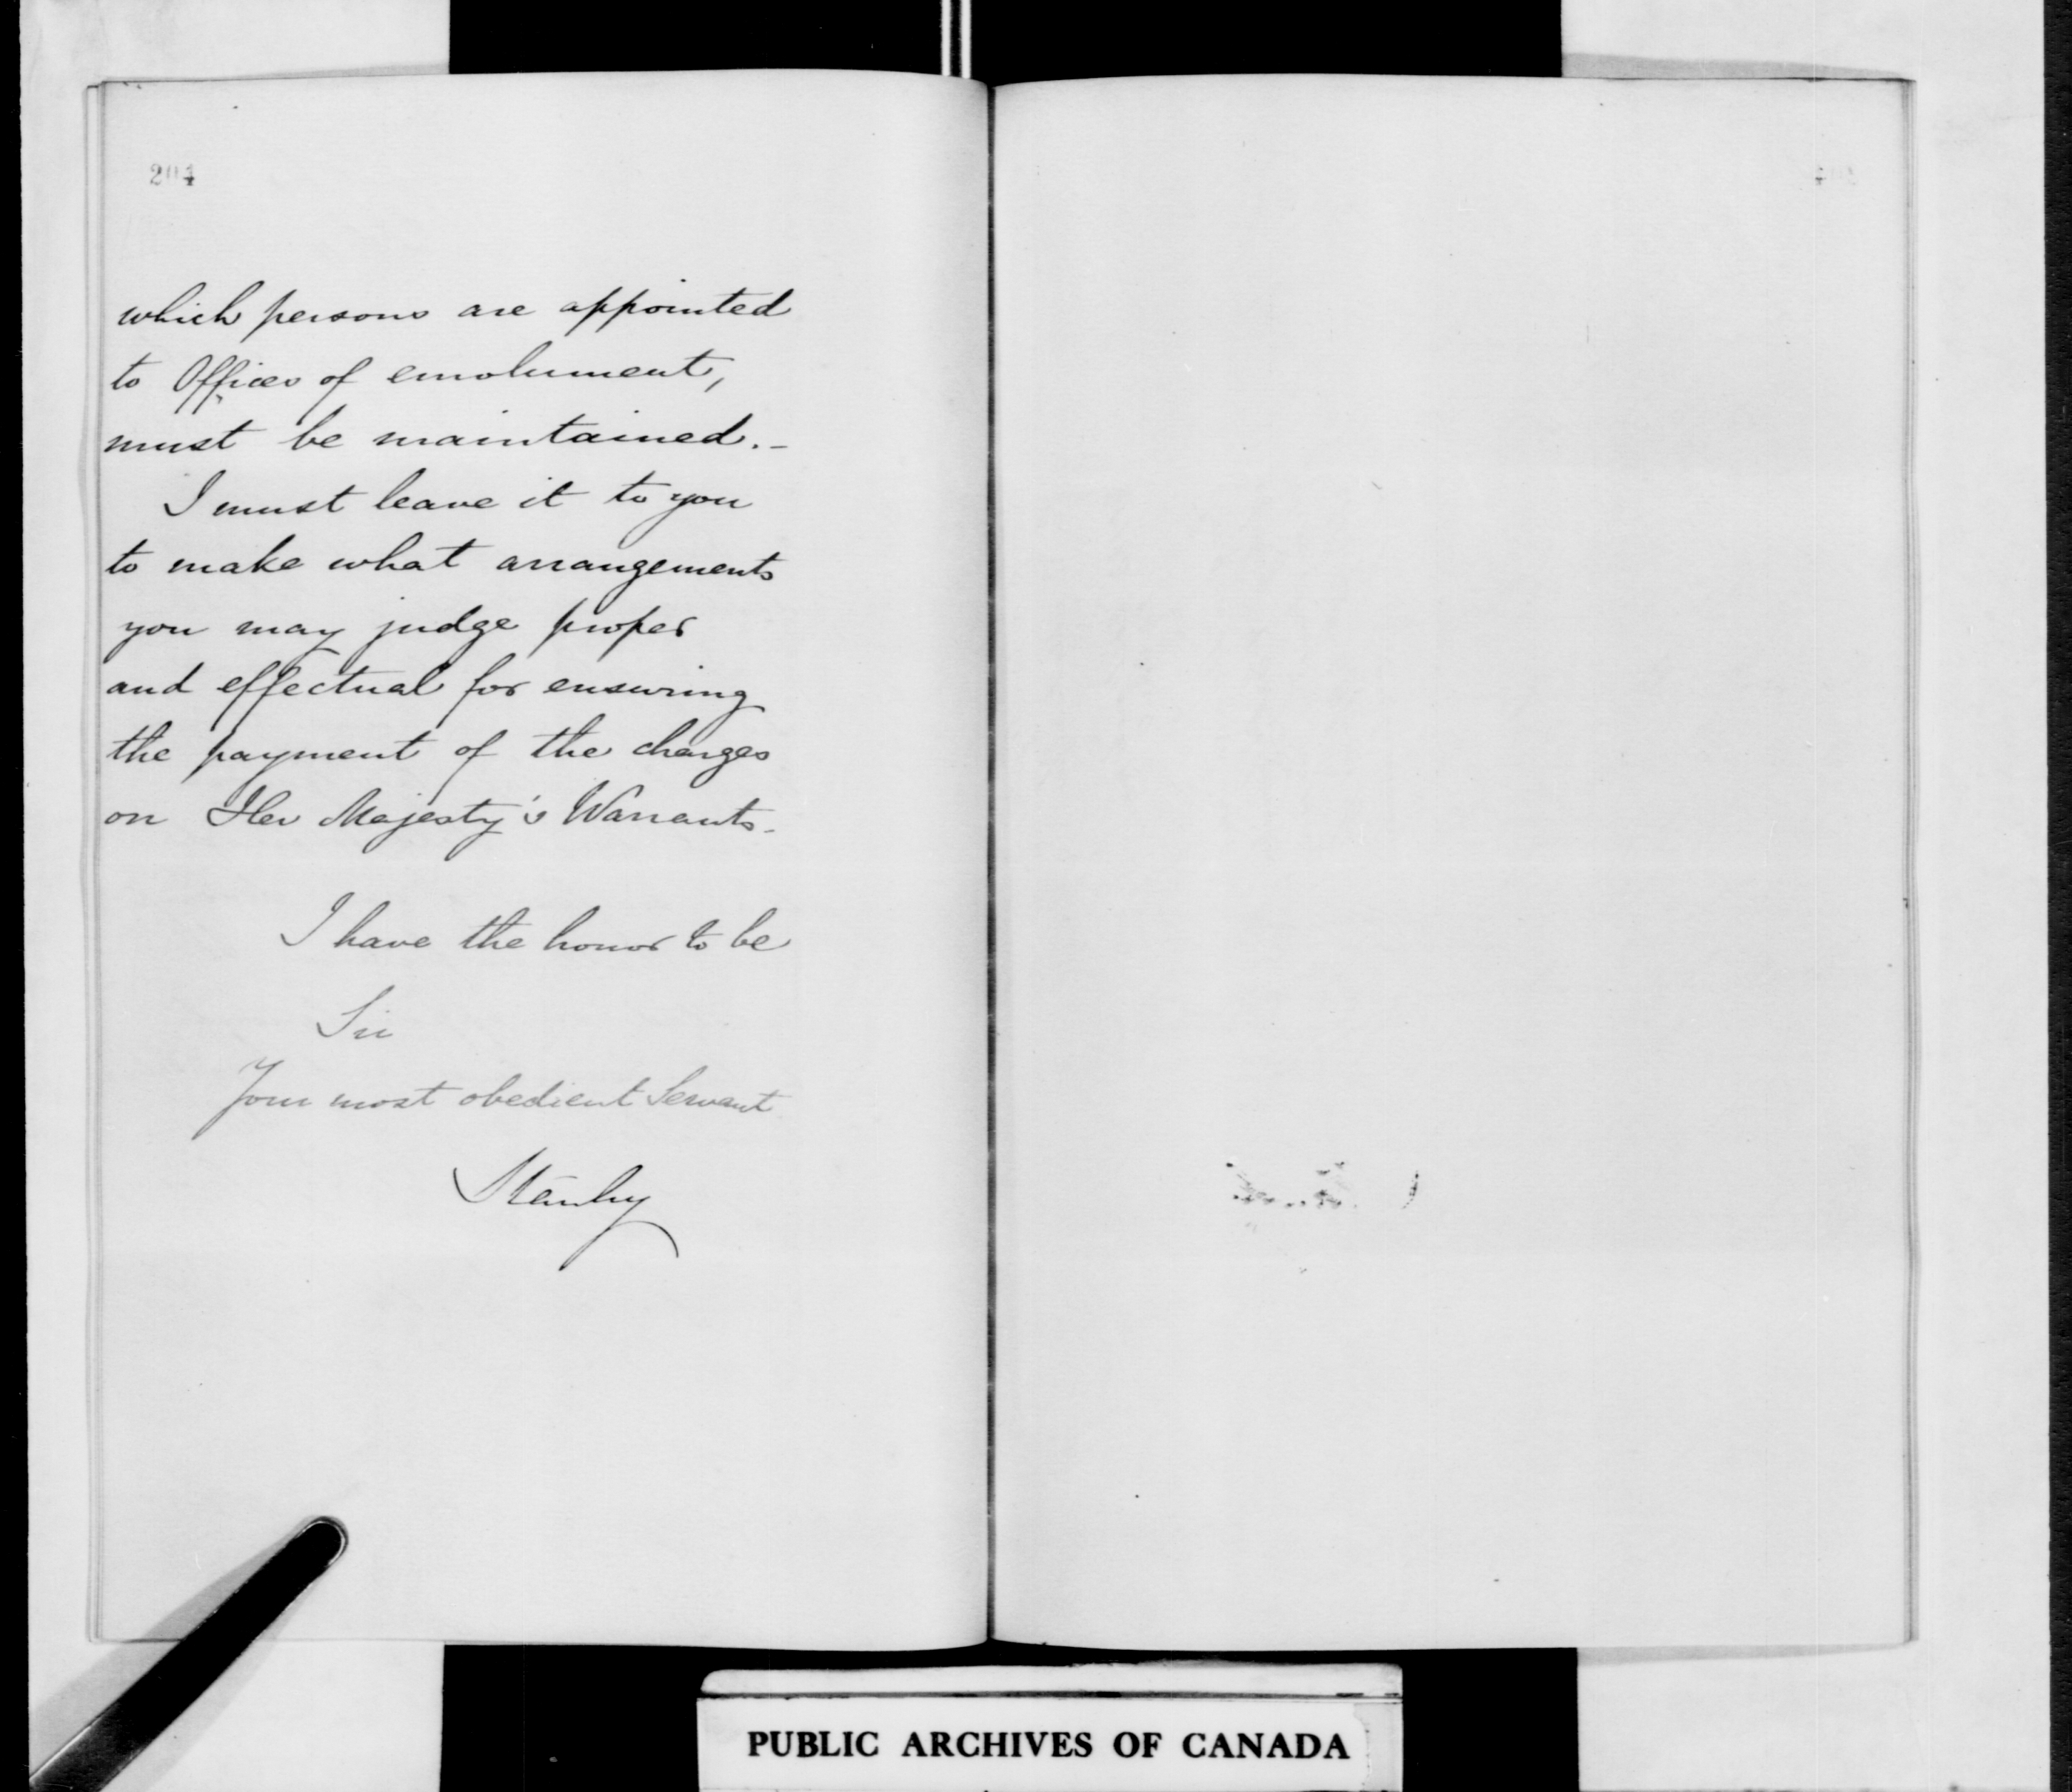 204
which persons are appointed
to Offices of emolument,
must be maintained. -
I must leave it to you
to make what arrangements
you may judge proper
and effectual for ensuring
the payment of the charges
on Her Majesty's Warrants -
I have the honor to be
Sir
Your most obedient Servant
Stanley
PUBLIC ARCHIVES OF CANADA